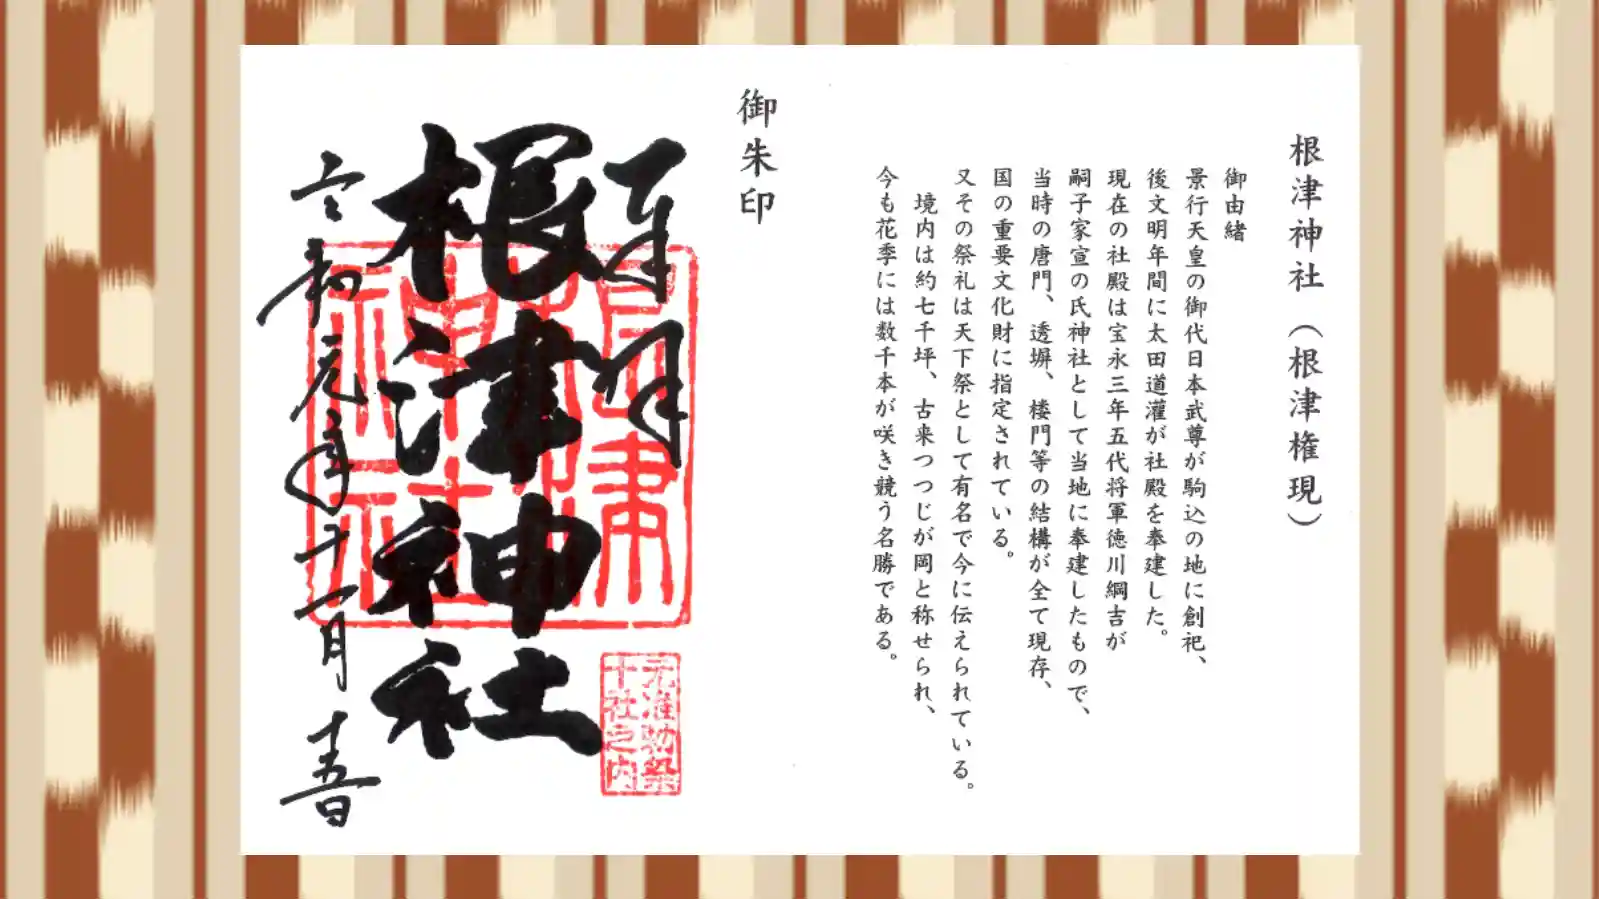 根津神社（根津権現）
御由緒
景行天皇の御代日本武尊が駒込の地に創祀、
後文明年間に太田道灌が社殿を奉建した。
現在の社殿は宝永三年五代将軍徳川綱吉が
嗣子家宣の氏神社として当地に奉建したもので、
当時の唐門、透塀、楼門等の結構が全て現存、
国の重要文化財に指定されている。
又その祭礼は天下祭として有名で今に伝えられている。
境内は約七千坪、古来つつじが岡と称せられ、
今も花季には数千本が咲き競う名勝である。
御朱印
奉拝
根津神社
令和元年十一月十五日
根津
神社
元准勅祭
十社之内